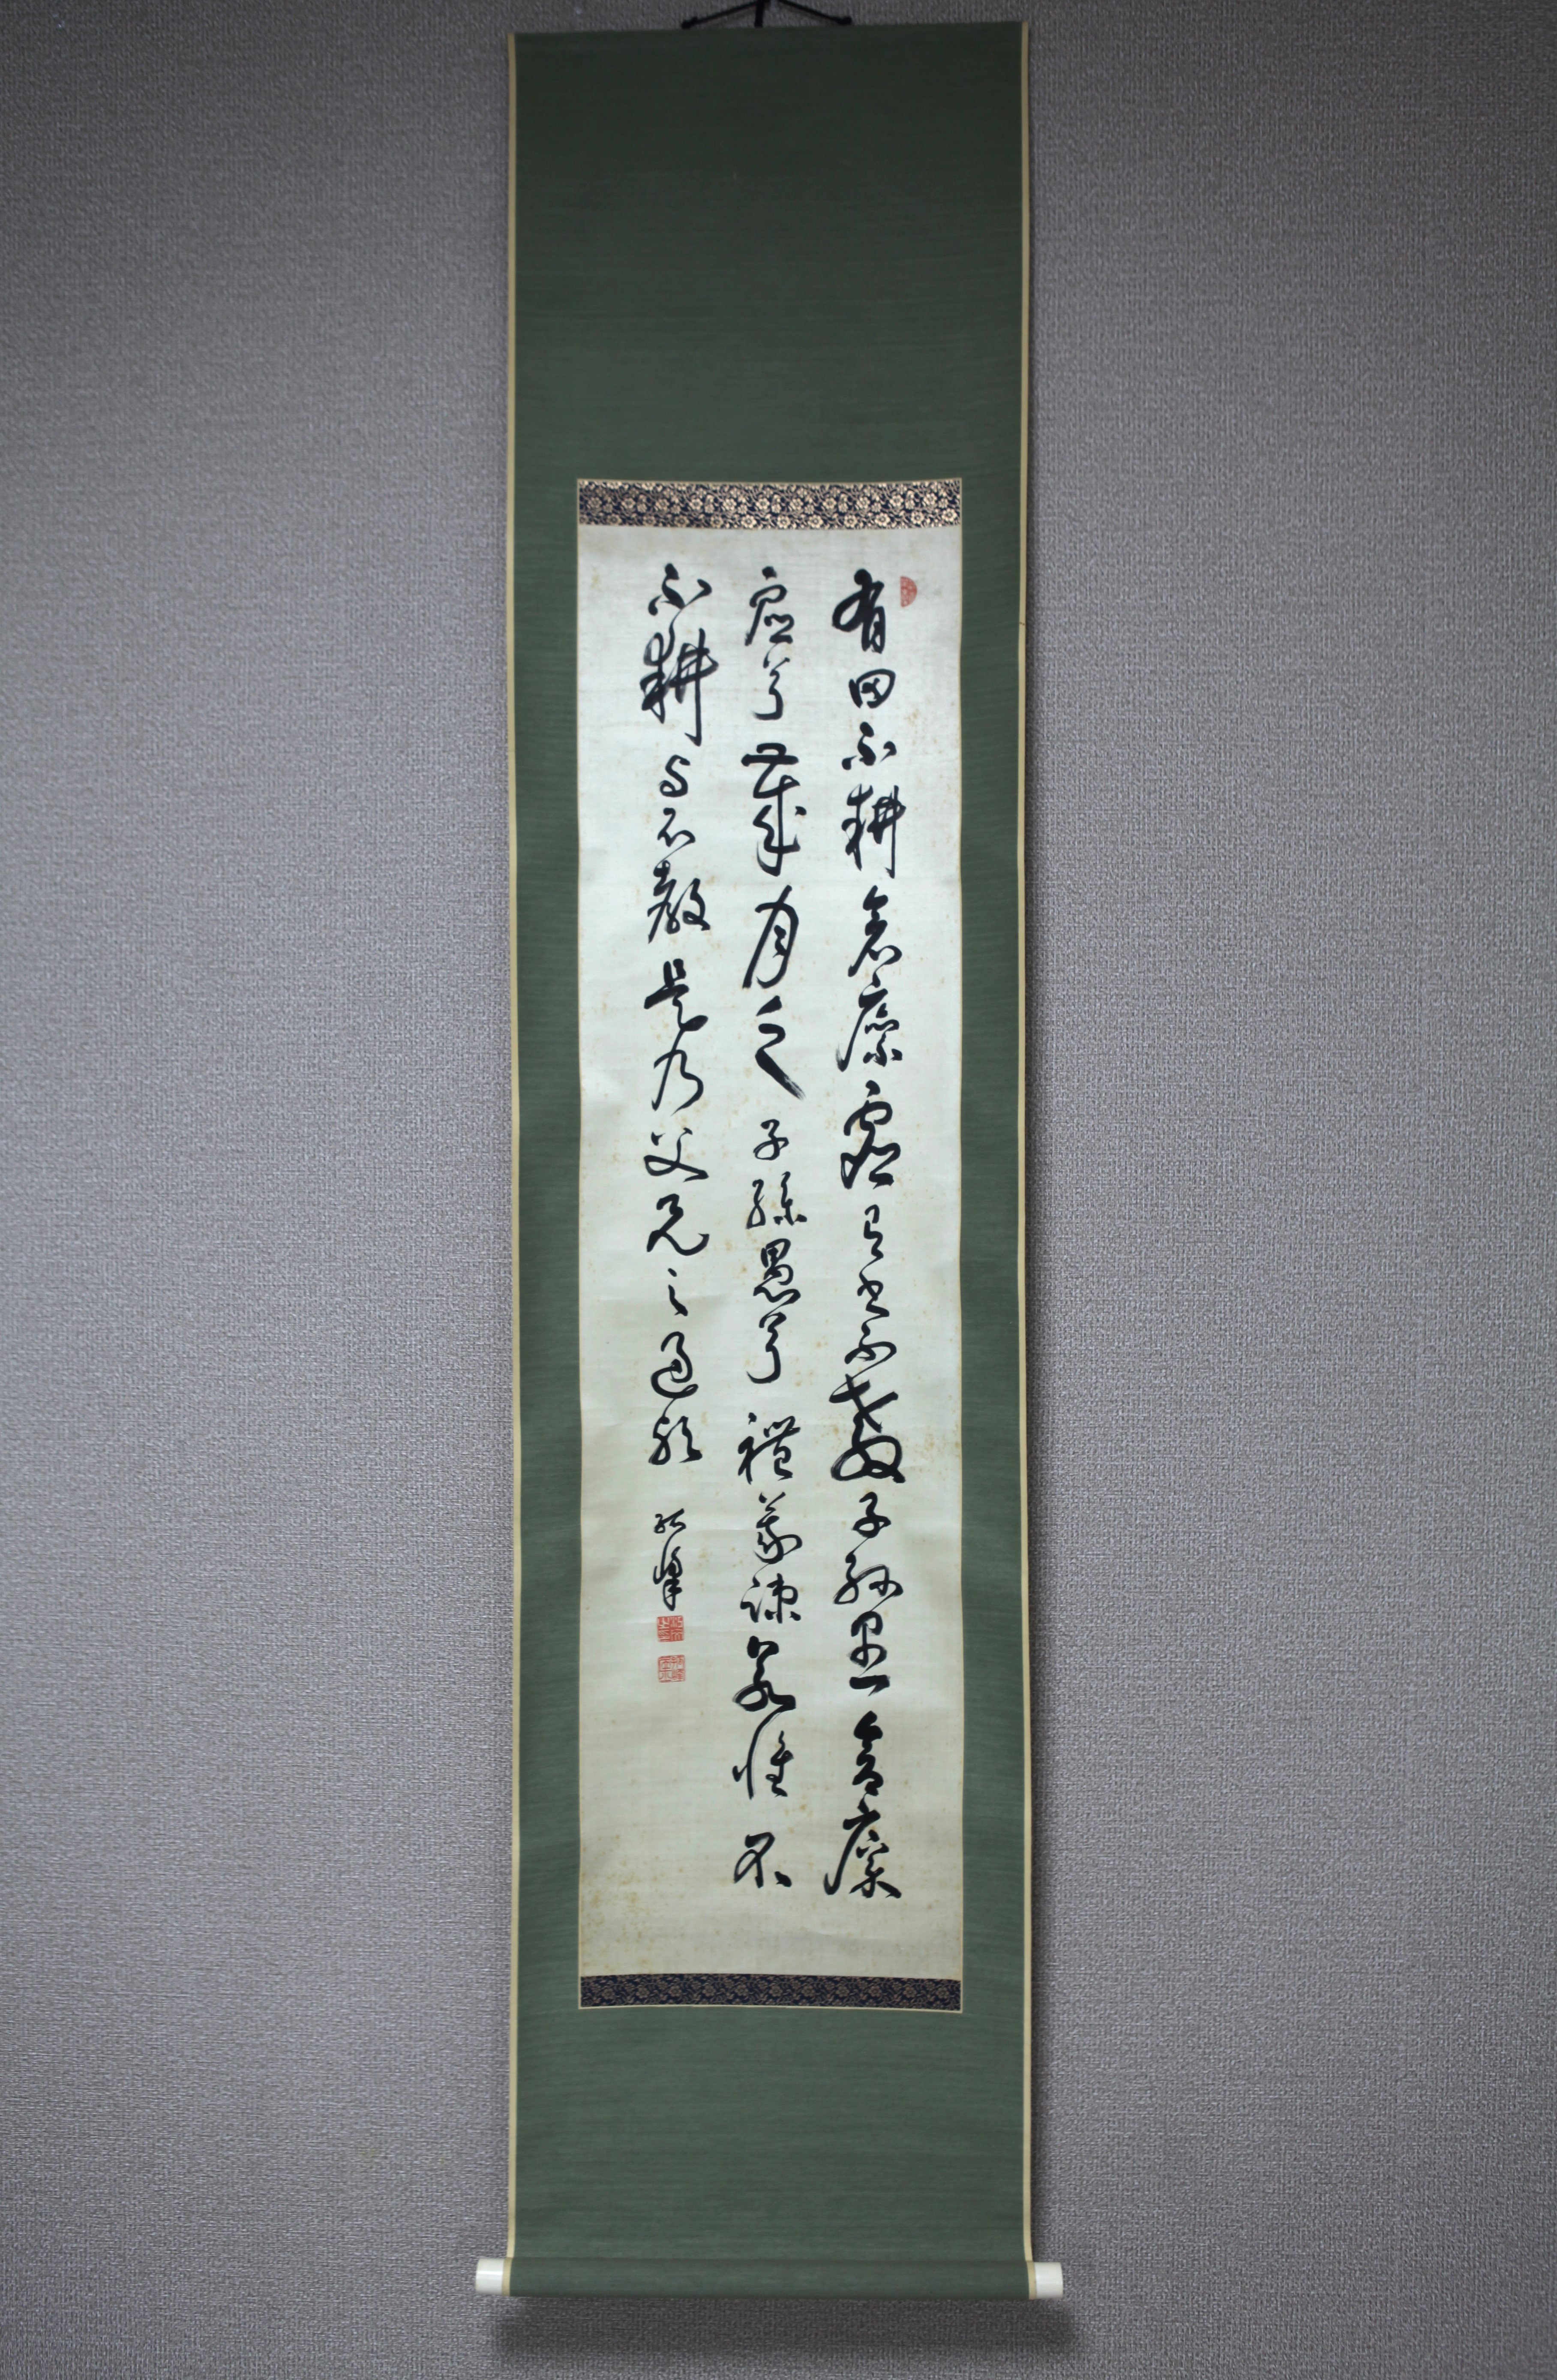 有田不耕倉廩虚有書不教子孫愚倉廩
虚兮歳月乏子孫愚兮禮義疎若惟不
不耕与不教是乃父兄之過歟